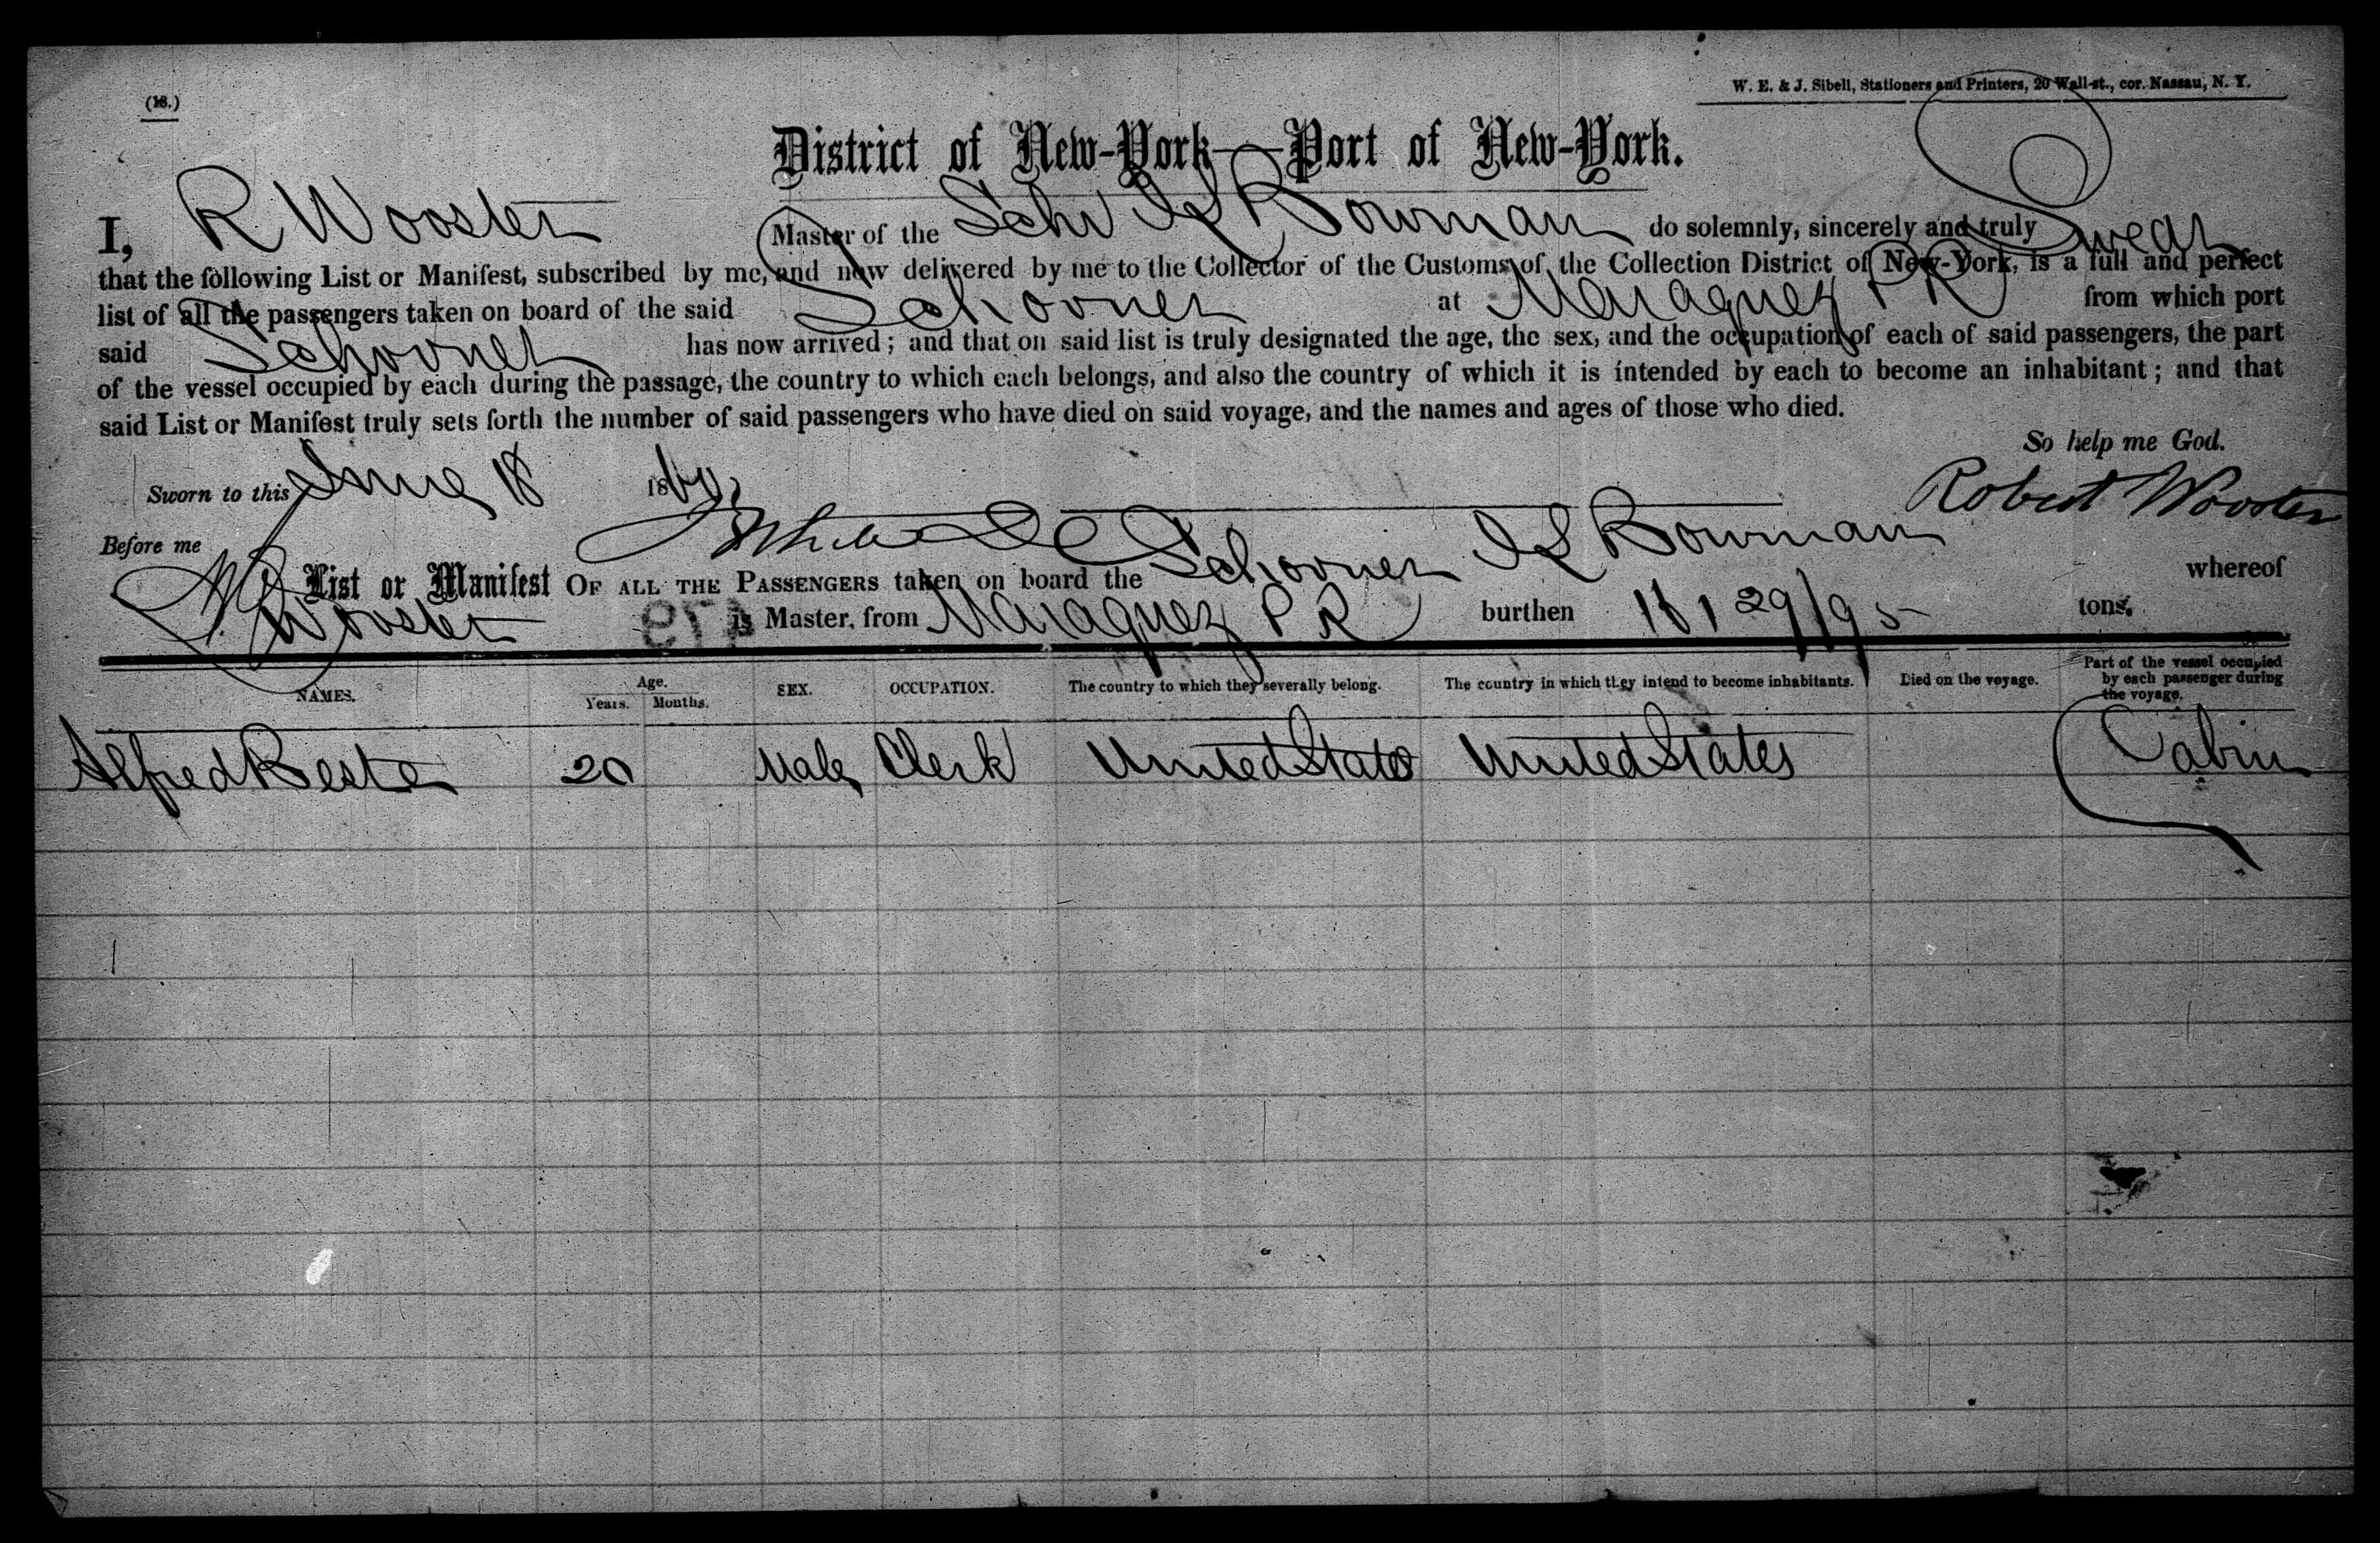 (18.)
W. E. & J. Sibell, Stationers and Printers, 20 Wall-st., cor. Nassau, N. Y.
District of New-York—Port of New-York.
I, R Wooster Master of the Schr I L Bowman do solemnly, sincerely and truly Swear
that the following List or Manifest, subscribed by me, and now delivered by me to the Collector of the Customs of the Collection District of New-York, is a full and perfect
list of all the passengers taken on board of the said Schooner at Maraguez P R from which port
said Schooner has now arrived; and that on said list is truly designated the age, the sex, and the occupation of each of said passengers, the part
of the vessel occupied by each during the passage, the country to which each belongs, and also the country of which it is intended by each to become an inhabitant; and that
said List or Manifest truly sets forth the number of said passengers who have died on said voyage, and the names and ages of those who died.
So help me God.
Sworn to this June 18 1860 Robert Wooster
Before me
List or Manifest OF ALL THE PASSENGERS taken on board the Schooner I L Bowman whereof
R Wooster is Master, from Maraguez P R burthen 181 29/95 tons.
NAMES. Age. Years. Months. SEX. OCCUPATION. The country to which they severally belong. The country in which they intend to become inhabitants. Died on the voyage. Part of the vessel occupied by each passenger during the voyage.
Alfred Beste 20 Male Clerk United States United States Cabin